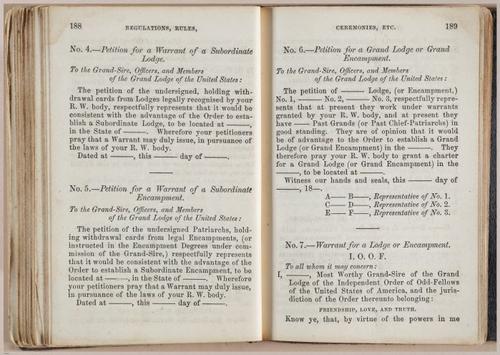 188 REGULATIONS, RULES,
No. 4.—Petition for a Warrant of a Subordinate
Lodge.
To the Grand-Sire, Officers, and Members
of the Grand Lodge of the United States:
The petition of the undersigned, holding with-
drawal cards from Lodges legally recognised by your
R. W. body, respectfully represents that it would be
consistent with the advantage of the Order to esta-
blish a Subordinate Lodge, to be located at ———,
in the State of ———. Wherefore your petitioners
pray that a Warrant may duly issue, in pursuance of
the laws of your R. W. body.
Dated at ———, this ——— day of ———.
No. 5.—Petition for a Warrant of a Subordinate
Encampment.
To the Grand-Sire, Officers, and Members
of the Grand Lodge of the United States:
The petition of the undersigned Patriarchs, hold-
ing withdrawal cards from legal Encampments, (or
instructed in the Encampment Degrees under com-
mission of the Grand-Sire,) respectfully represents
that it would be consistent with the advantage of the
Order to establish a Subordinate Encampment, to be
located at ———, in the State of ———. Wherefore
your petitioners pray that a Warrant may duly issue,
in pursuance of the laws of your R. W. body.
Dated at ———, this ——— day of ———.
CEREMONIES, ETC. 189
No. 6.—Petition for a Grand Lodge or Grand
Encampment.
To the Grand-Sire, Officers, and Members
of the Grand Lodge of the United States:
The petition of ——— Lodge, (or Encampment,)
No. 1, ——— No. 2, ——— No. 3, respectfully repre-
sents that at present they work under warrants
granted by your R. W. body, and at present they
have ——— Past Grands (or Past Chief-Patriarchs) in
good standing. They are of opinion it would be
of advantage to the Order to establish a Grand
Lodge (or Grand Encampment) in the ———. They
therefore pray your R. W. body to grant a charter
for a Grand Lodge (or Grand Encampment) in the
———, to be located at ———.
Witness our hands and seals, this ——— day of
———, 18—.
A—— B——, Representative of No. 1.
C—— D——, Representative of No. 2.
E—— F——, Representative of No. 3.
No. 7.—Warrant for a Lodge or Encampment.
I. O. O. F.
To all whom it may concern:
I, ———, Most Worthy Grand-Sire of the Grand
Lodge of the Independent Order of Odd-Fellows
of the United States of America, and the juris-
diction of the Order thereunto belonging:
FRIENDSHIP, LOVE, AND TRUTH.
Know ye, that, by virtue of the powers in me